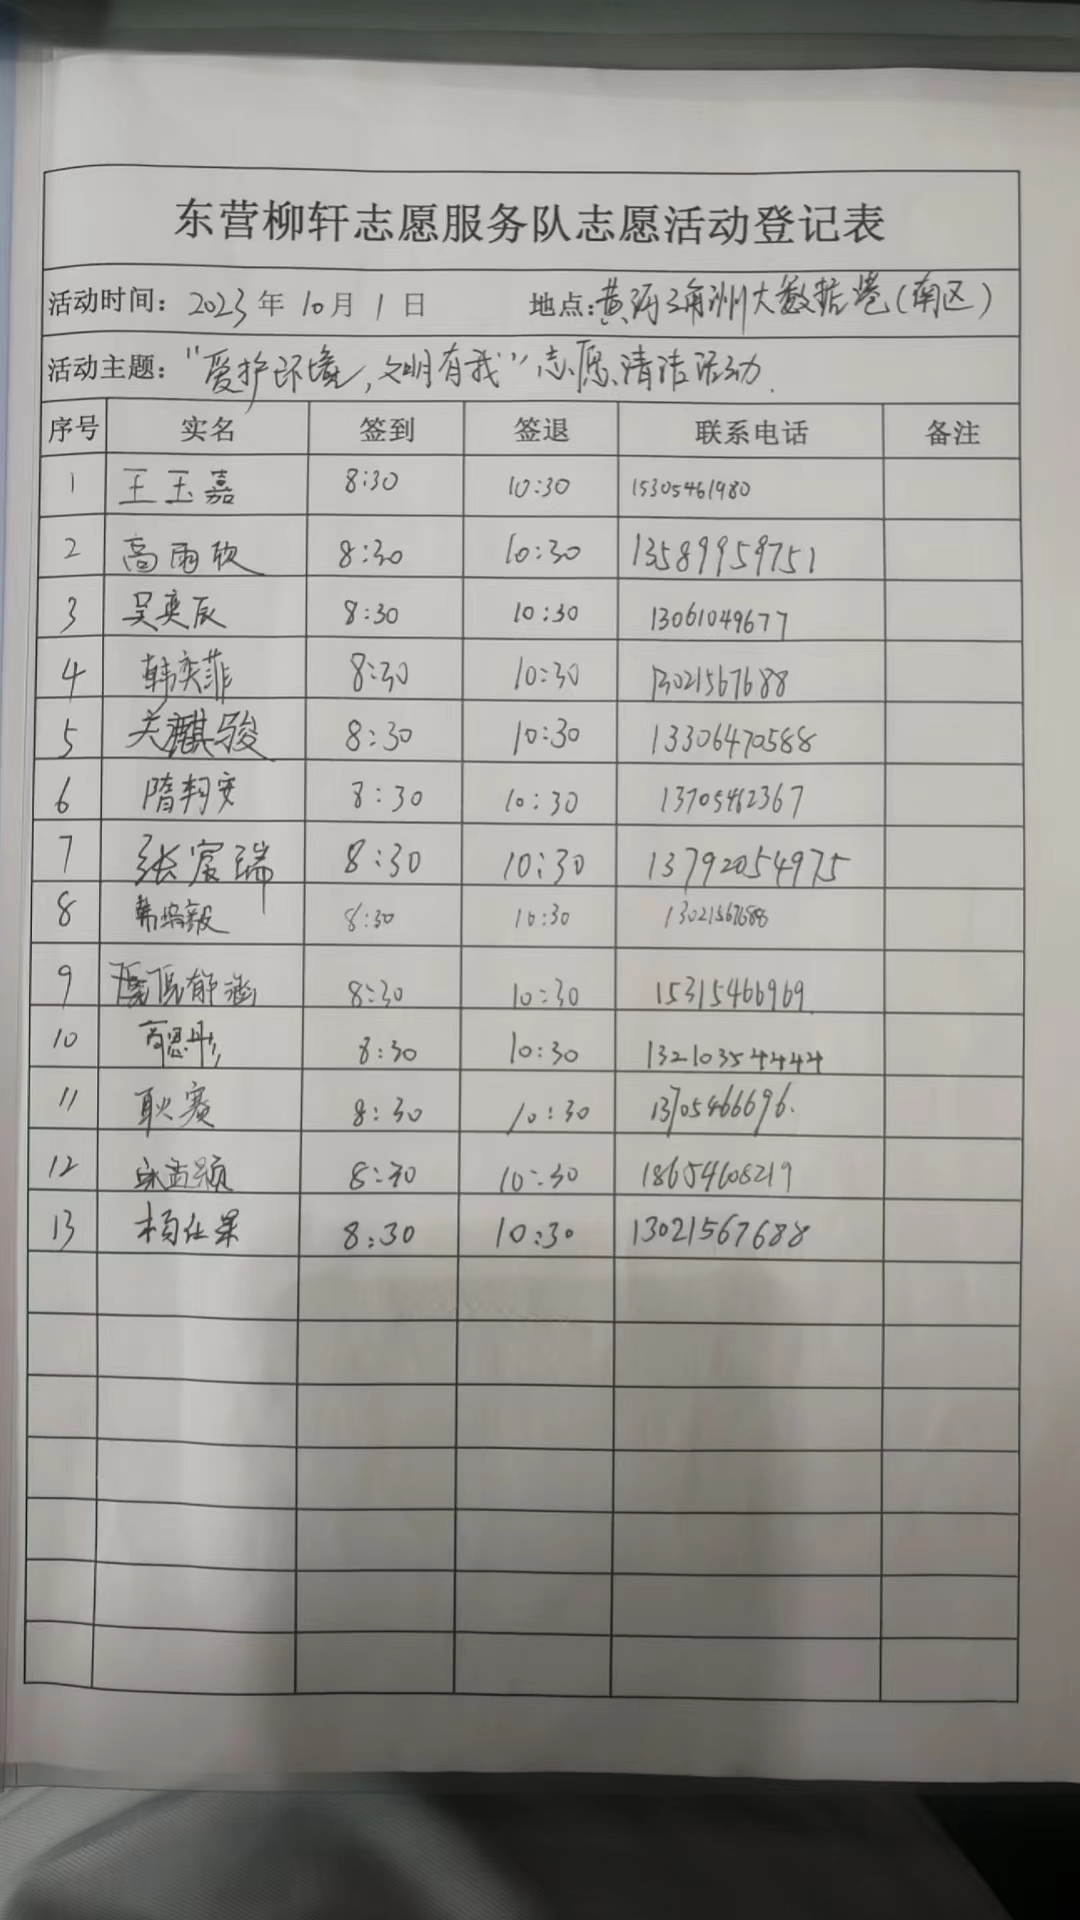 东营柳轩志愿服务队志愿活动登记表
活动时间：2023年10月1日 地点：黄河三角洲大数据港（南区）
活动主题：“爱护环境，文明有我”志愿清洁活动.
序号 实名 签到 签退 联系电话 备注
1 王玉嘉 8:30 10:30 15305461980
2 高雨欣 8:30 10:30 13589959751
3 吴奕辰 8:30 10:30 13061049677
4 韩奕菲 8:30 10:30 13021567688
5 关麒骏 8:30 10:30 13306470588
6 隋翔安 8:30 10:30 13705462367
7 张宸瑞 8:30 10:30 13792054975
8 8:30 10:30 13021567688
9 8:30 10:30 15315466969
10 高思彤 8:30 10:30 13210354444
11 耿赛 8:30 10:30 13705466696.
12 8:30 10:30 18654608219
13 杨仕果 8:30 10:30 13021567688